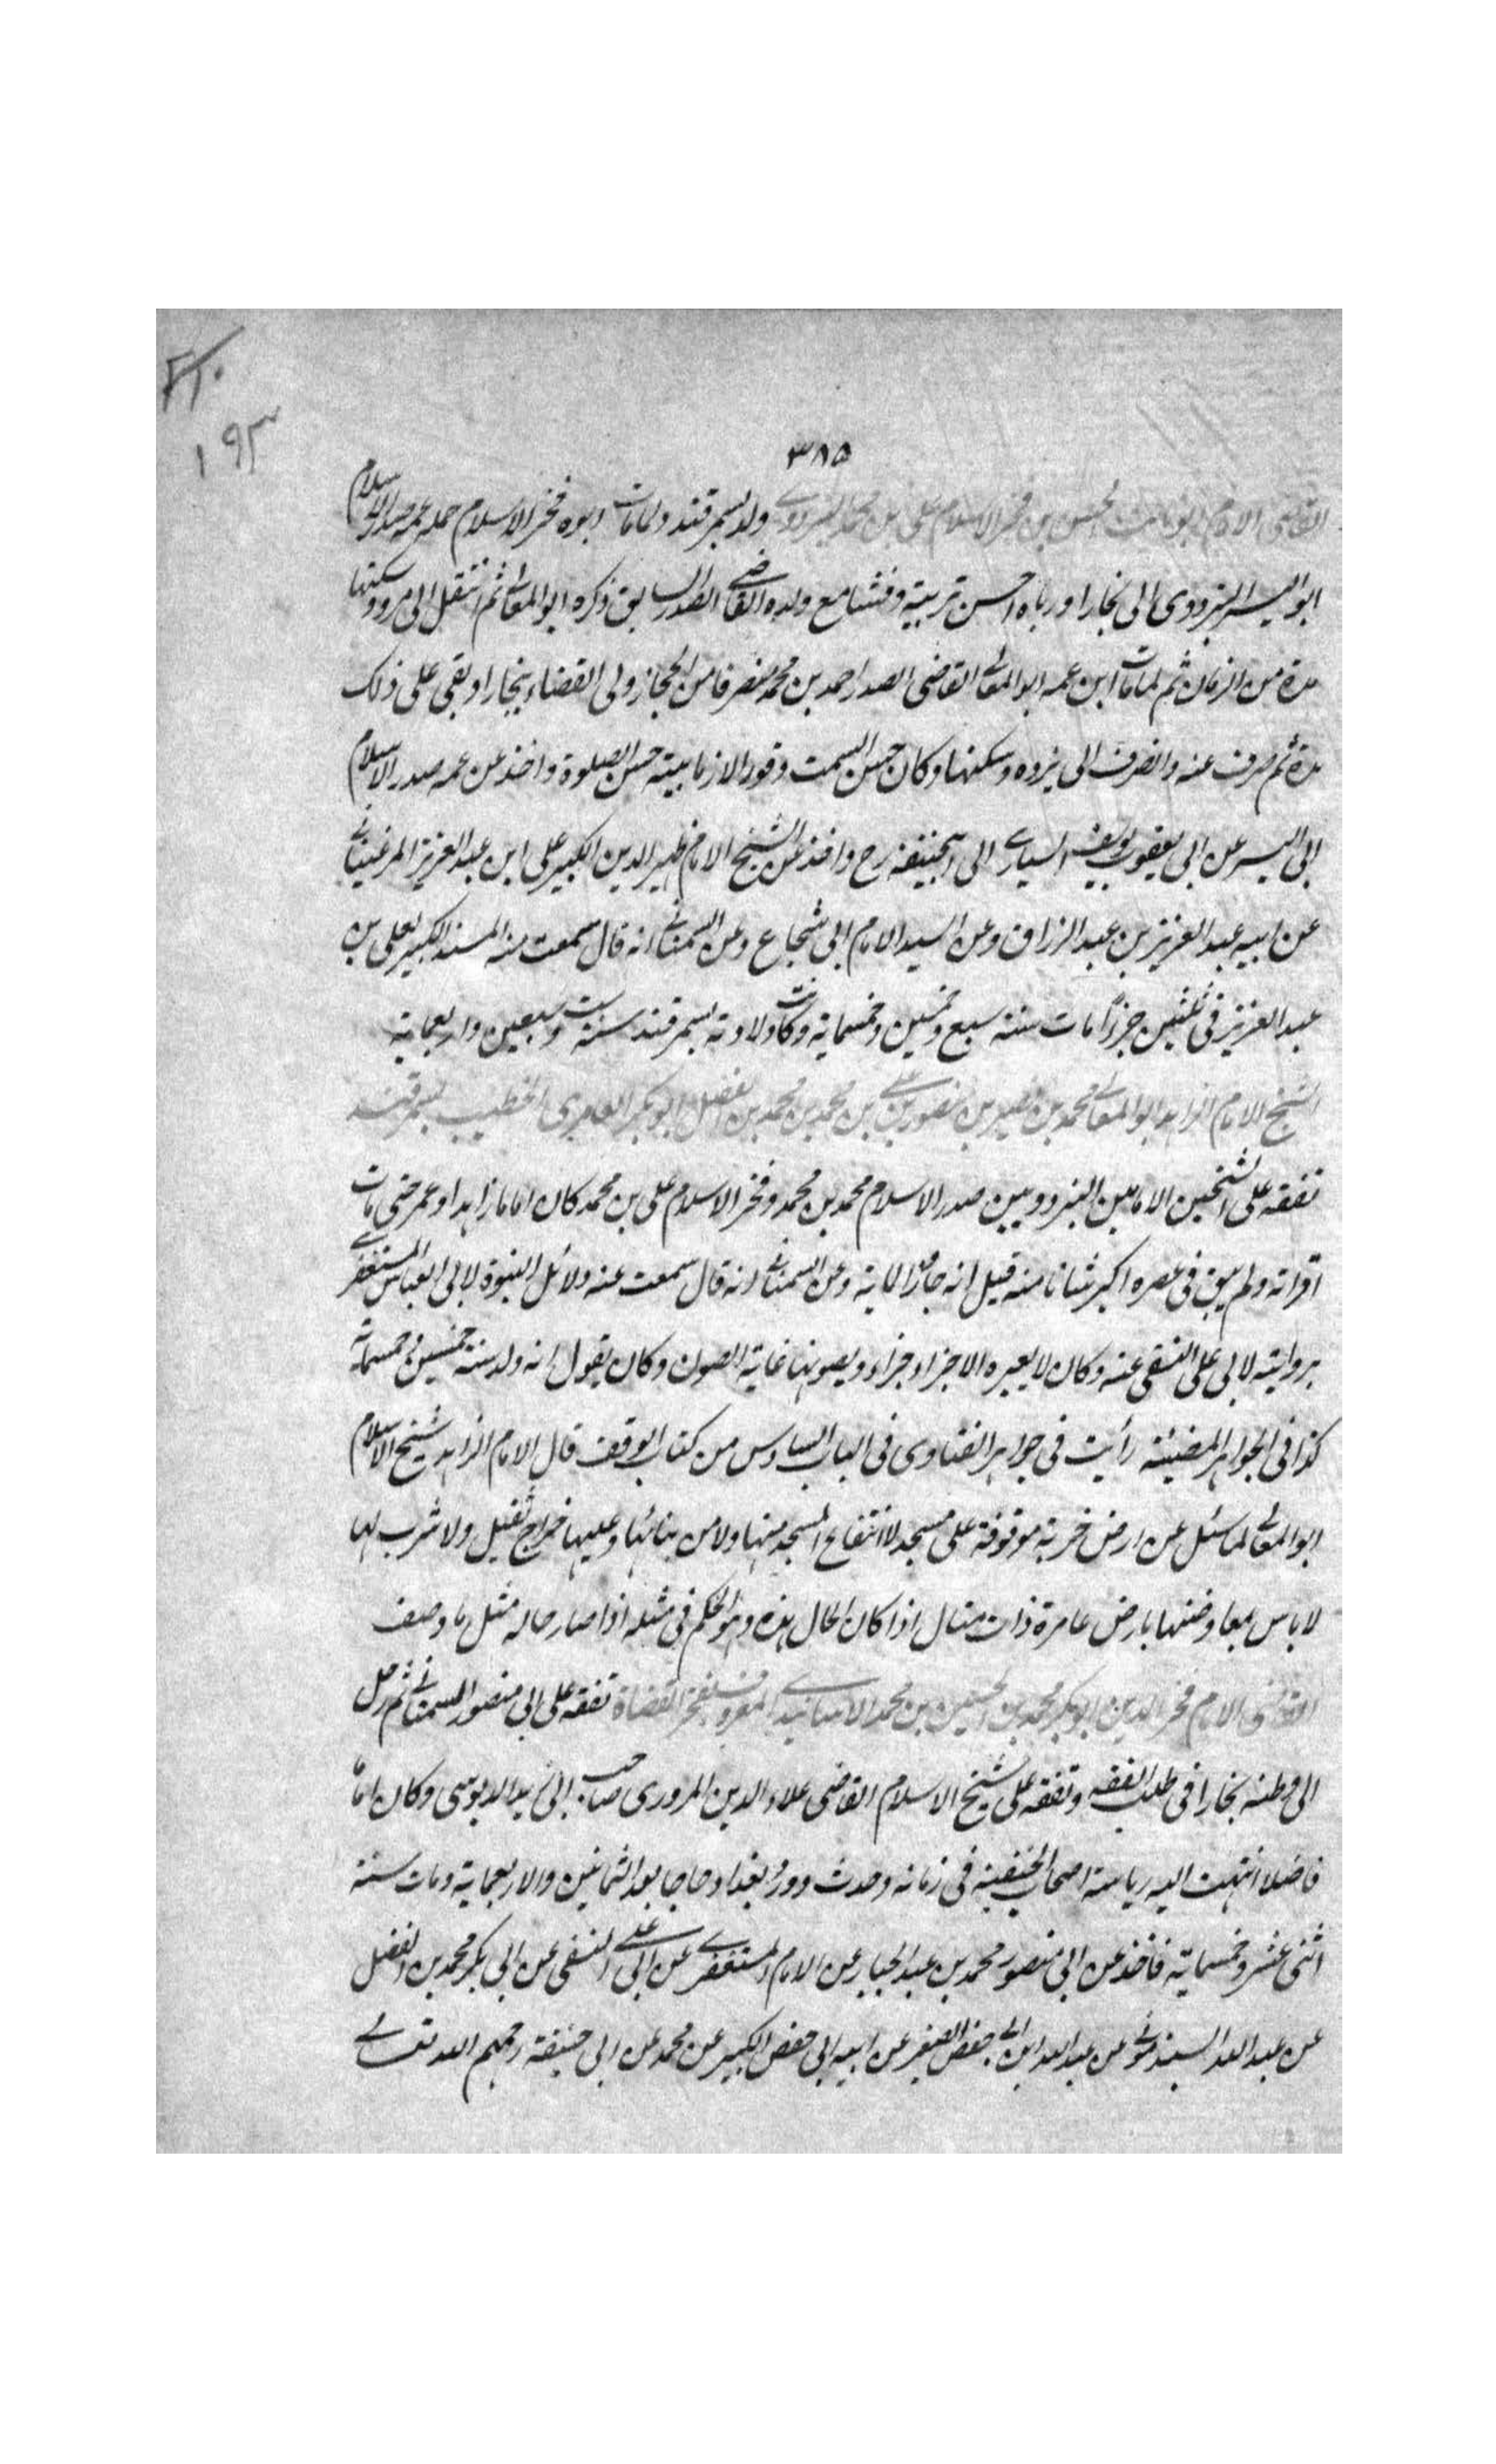 ٢١٠
١٩٣
٣٨٥
القاضى الامام ابو ثابت الحسن بن فخر الاسلام على بن محمد البزدوى ولد بسمرقند ولما مات ابوه فخر الاسلام حمله عمه صدر الاسلام
ابو اليسر البزدوى الى بخارا ورباه احسن تربية ونشا مع ولده القاضى الصدر السابق ذكره ابو المعالى ثم انتقل الى مرو وسكنها
مدة من الزمان ثم لما مات ابن عمه ابو المعالى القاضى الصدر احمد بن محمد منصرفا من الحجاز ولى القضاء ببخارا وبقى على ذلك
مدة ثم صرف عنه وانصرف الى بزده وسكنها وكان حسن السمت وقورا لازما بيته حسن الصلوة واخذ عن عمه صدر الاسلام
ابى اليسر عن ابى يعقوب يوسف السيارى الى ابيحنيفة رح واخذ عن الشيخ الامام ظهير الدين الكبير على ابن عبد العزيز المرغينانى
عن ابيه عبد العزيز بن عبد الرزاق وعن السيد الامام ابى شجاع وعن السمنانى انه قال سمعت منه المسند الكبير لعلى بن
عبد العزيز فى ثلثين جزءا مات سنة سبع وخمسين وخمسماية وكانت ولادته بسمرقند سنة ست وسبعين واربعماية
الشيخ الامام الزاهد ابو المعالى محمد بن نصير بن منصور بن على بن محمد بن محمد بن الفضل ابو بكر العامرى الخطيب بسمرقند
تفقه على الشيخين الامامين البزدويين صدر الاسلام محمد بن محمد وفخر الاسلام على بن محمد كان اماما زاهدا وعمر حتى مات
اقرانه ولم يبق فى عصره اكبر شانا منه قيل انه جاز الماية وعن السمنانى انه قال سمعت عنه دلائل النبوة لابى العباس المستغفرى
بروايته لابى على النسفى عنه وكان لا يعيره الاجزاء جزاء ويصونها غاية الصون وكان يقول انه ولد سنة خمسين وخمسماية
كذا فى الجواهر المضيئة رأيت فى جواهر الفتاوى فى الباب السادس من كتاب الوقف قال الامام الزاهد شيخ الاسلام
ابو المعالى لما سئل عن ارض خربة موقوفة على مسجد لا انتفاع المسجد منها ولا من بنائها وعليها خراج ثقيل ولا شرب لها
لا باس بمعاوضتها بارض عامرة ذات منال اذا كان الحال هذه وهو الحكم فى مثله اذا صار حاله مثل ما وصف
القاضى الامام فخر الدين ابو بكر محمد بن الحسين بن محمد الارسابندى المعروف بفخر القضاة تفقه على ابى منصور السمعانى ثم رحل
الى وطنه بخارا فى طلب الفقه وتفقه على شيخ الاسلام القاضى علاء الدين المروزى صاحب ابى زيد الدبوسى وكان اماما
فاضلا انتهت اليه رياسة اصحاب الحنفية فى زمانه وحدث وورد بغداد حاجا بعد الثمانين والاربعماية ومات سنة
اثنى عشر وخمسماية فاخذ عن ابى منصور محمد بن عبد الجبار عن الامام المستغفرى عن ابى على النسفى عن ابى بكر محمد بن الفضل
عن عبد الله السبذمونى عن عبد الله ابن ابى حفص الصغير عن ابيه ابى حفص الكبير عن محمد عن ابى حنيفة رحمهم الله تعالى